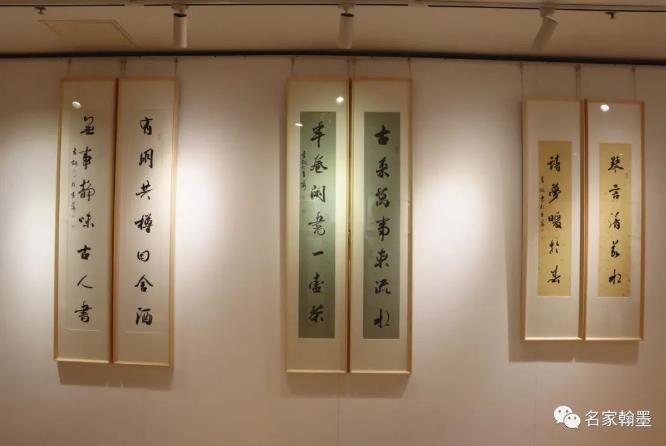 有朋共樽田舍酒
無事静味古人書
古來萬事東流水
半卷閑書一壺茶
琴言清若水
詩夢暖於春
名家翰墨